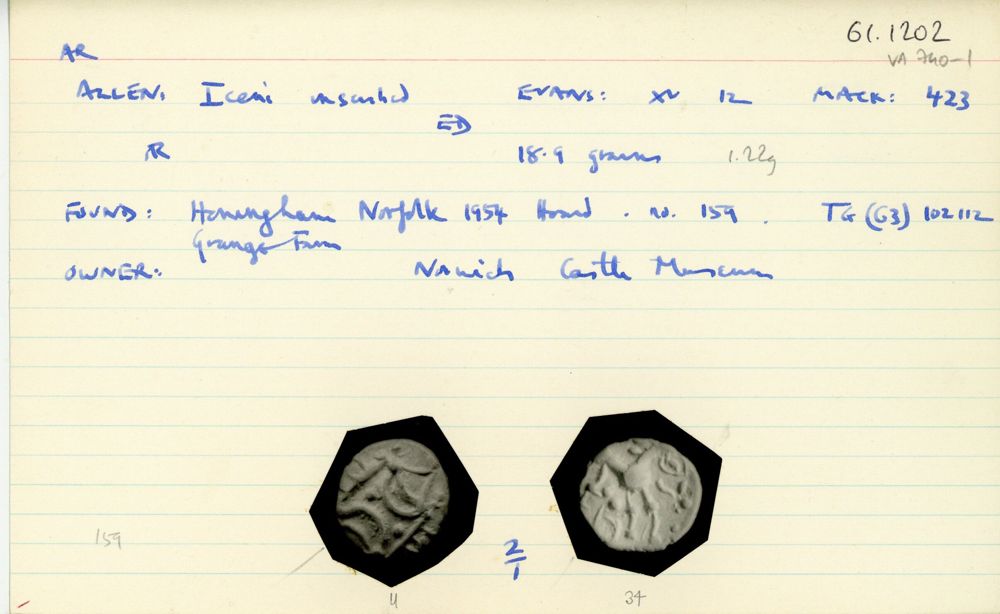 61.1202
VA 740-1
AR
ALLEN: Iceni inscribed EVANS: XV 12 MACK: 423
ED
AR 18.9 grains 1.22g
FOUND: Honingham Norfolk 1954 Hoard. no. 159. TG (63) 102112
Grange Farm
OWNER: Norwich Castle Museum
159
2/1
34